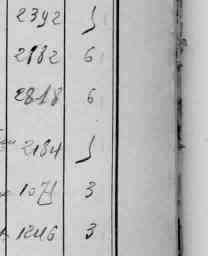 2392 5
2182 6
2818 6
2184 5
1071 3
1246 3